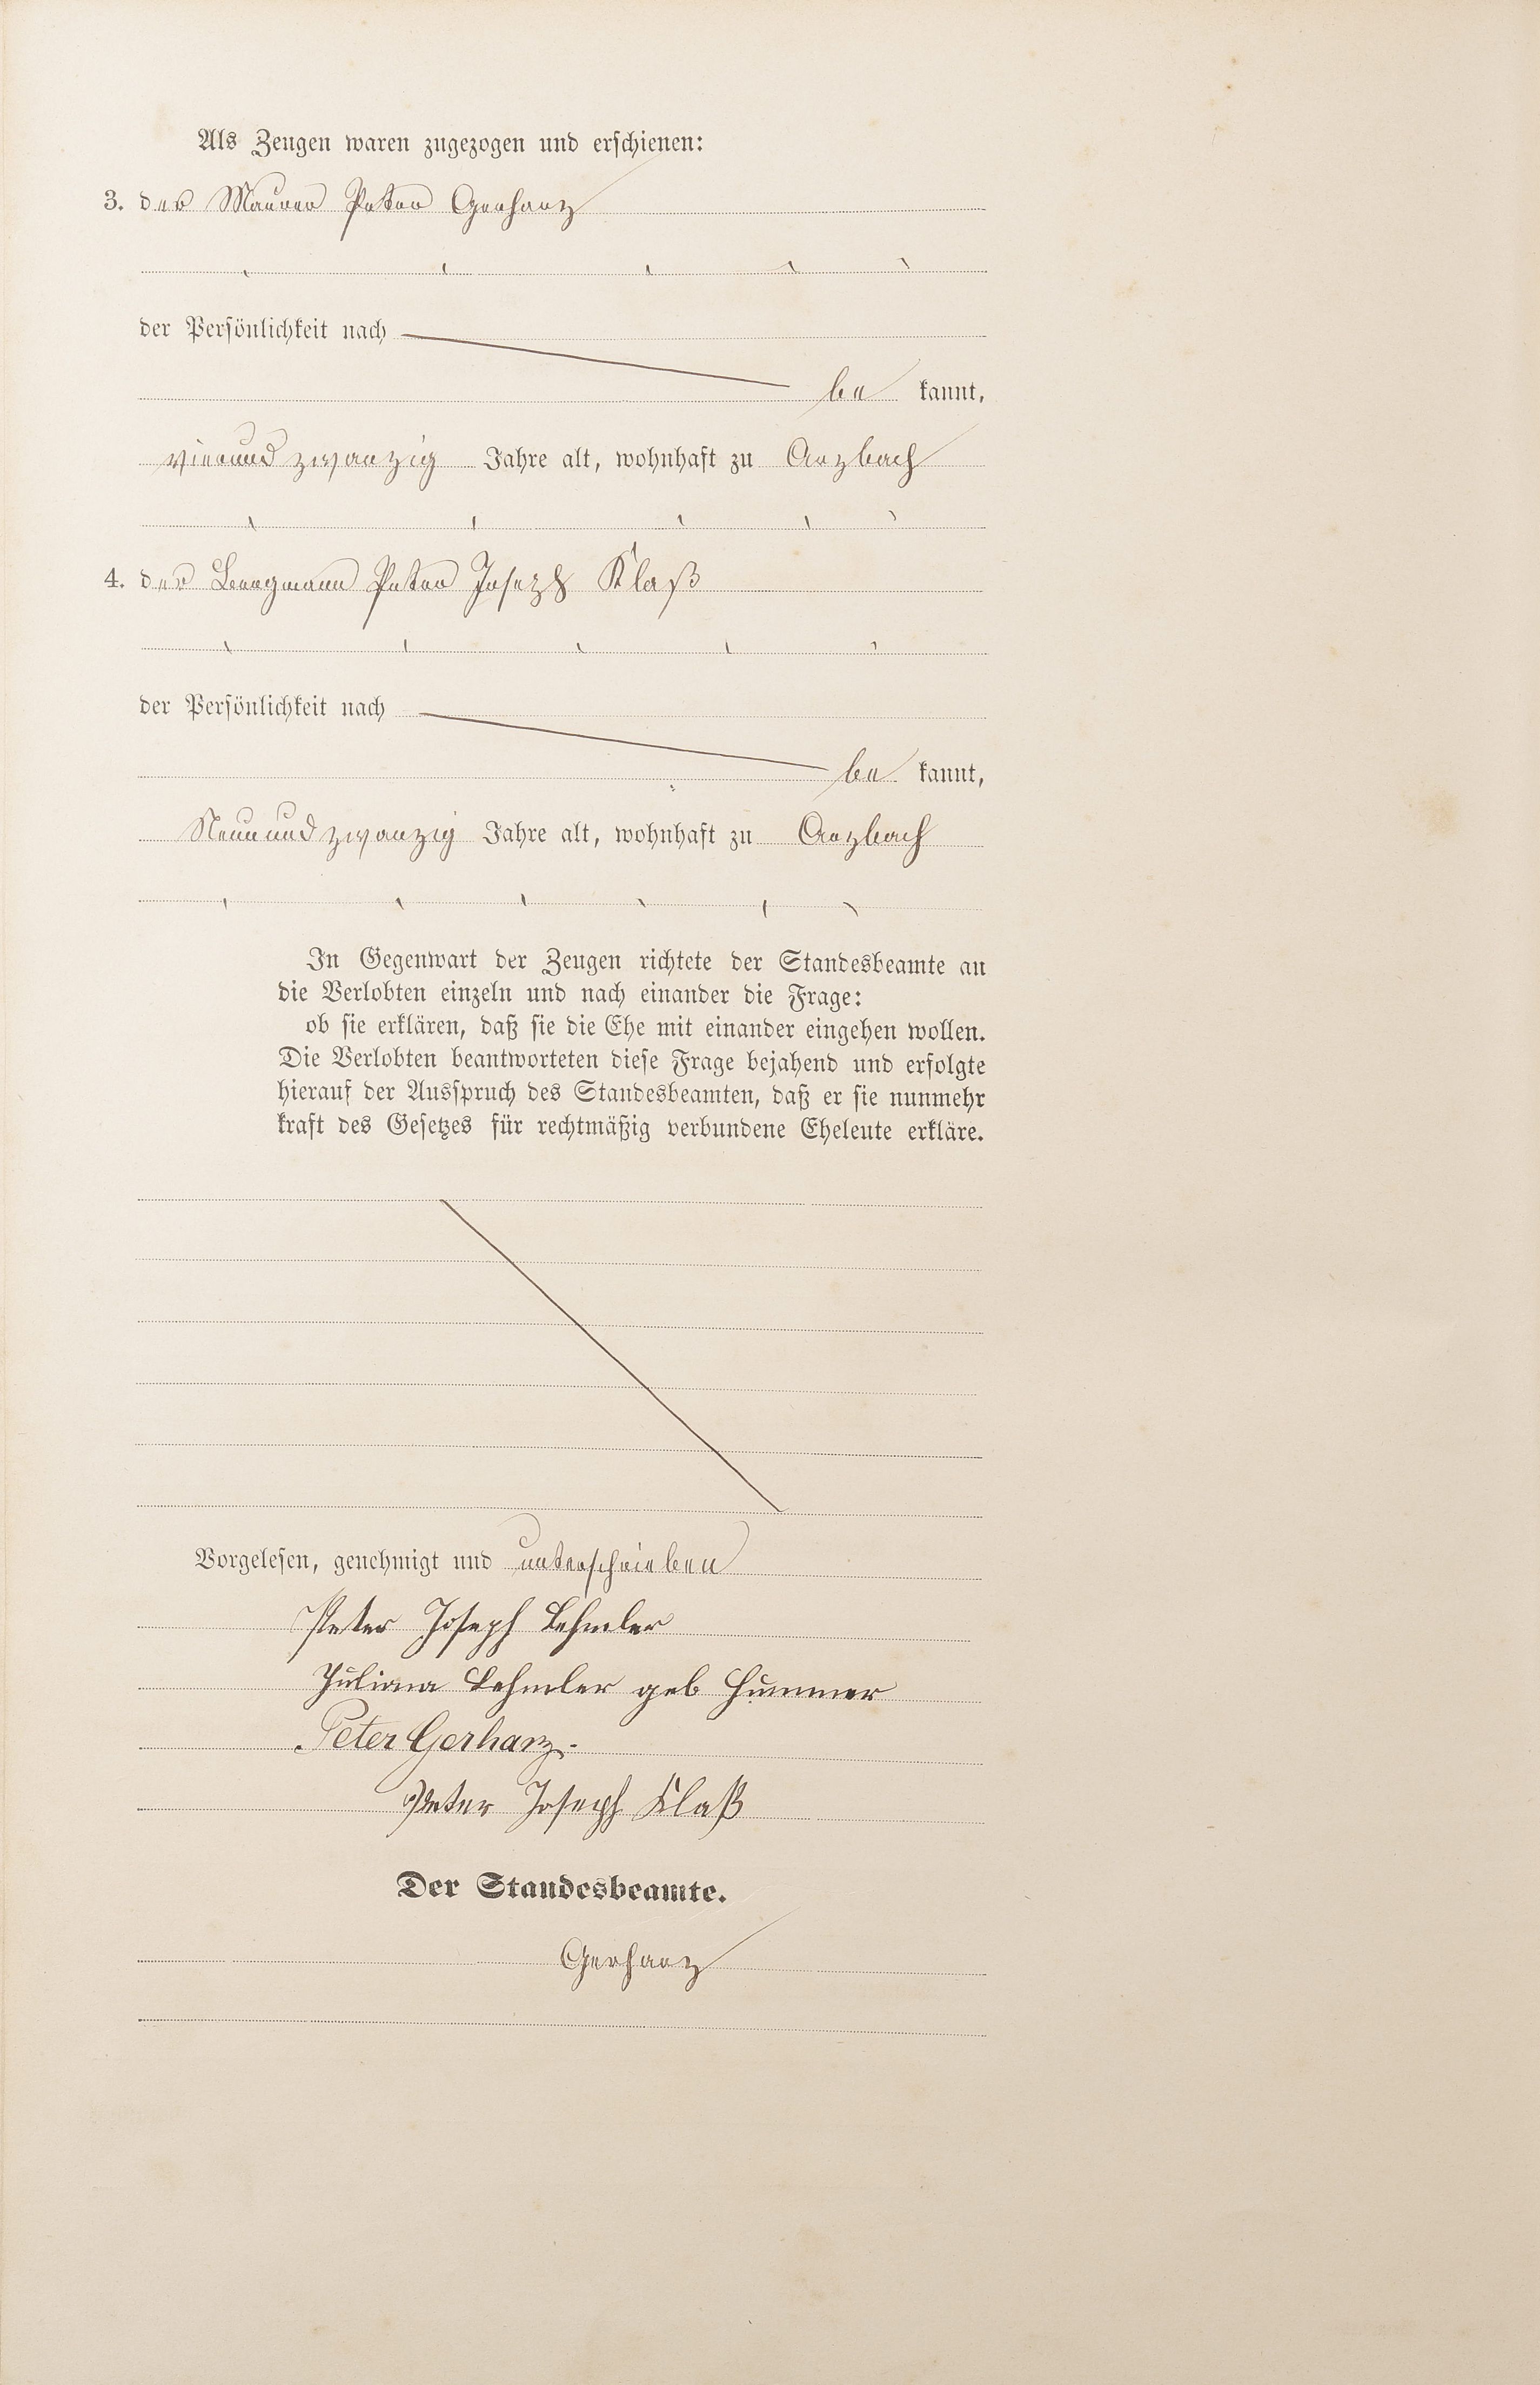 Als Zeugen waren zugezogen und erschienen:
3. der Maurer Peter Gerharz
der Persönlichkeit nach
be kannt,
vierundzwanzig Jahre alt, wohnhaft zu Arzbach
4. der Bergmann Peter Joseph Klaß
der Persönlichkeit nach
be kannt,
Neunundzwanzig Jahre alt, wohnhaft zu Arzbach
In Gegenwart der Zeugen richtete der Standesbeamte an
die Verlobten einzeln und nach einander die Frage:
ob sie erklären, daß sie die Ehe mit einander eingehen wollen.
Die Verlobten beantworteten diese Frage bejahend und erfolgte
hierauf der Ausspruch des Standesbeamten, daß er sie nunmehr
kraft des Gesetzes für rechtmäßig verbundene Eheleute erkläre.
Vorgelesen, genehmigt und unterschrieben
Peter Joseph Lehmler
Juliana Lehmler geb Hummer
Peter Gerharz.
Peter Joseph Klaß
Der Standesbeamte.
Gerharz